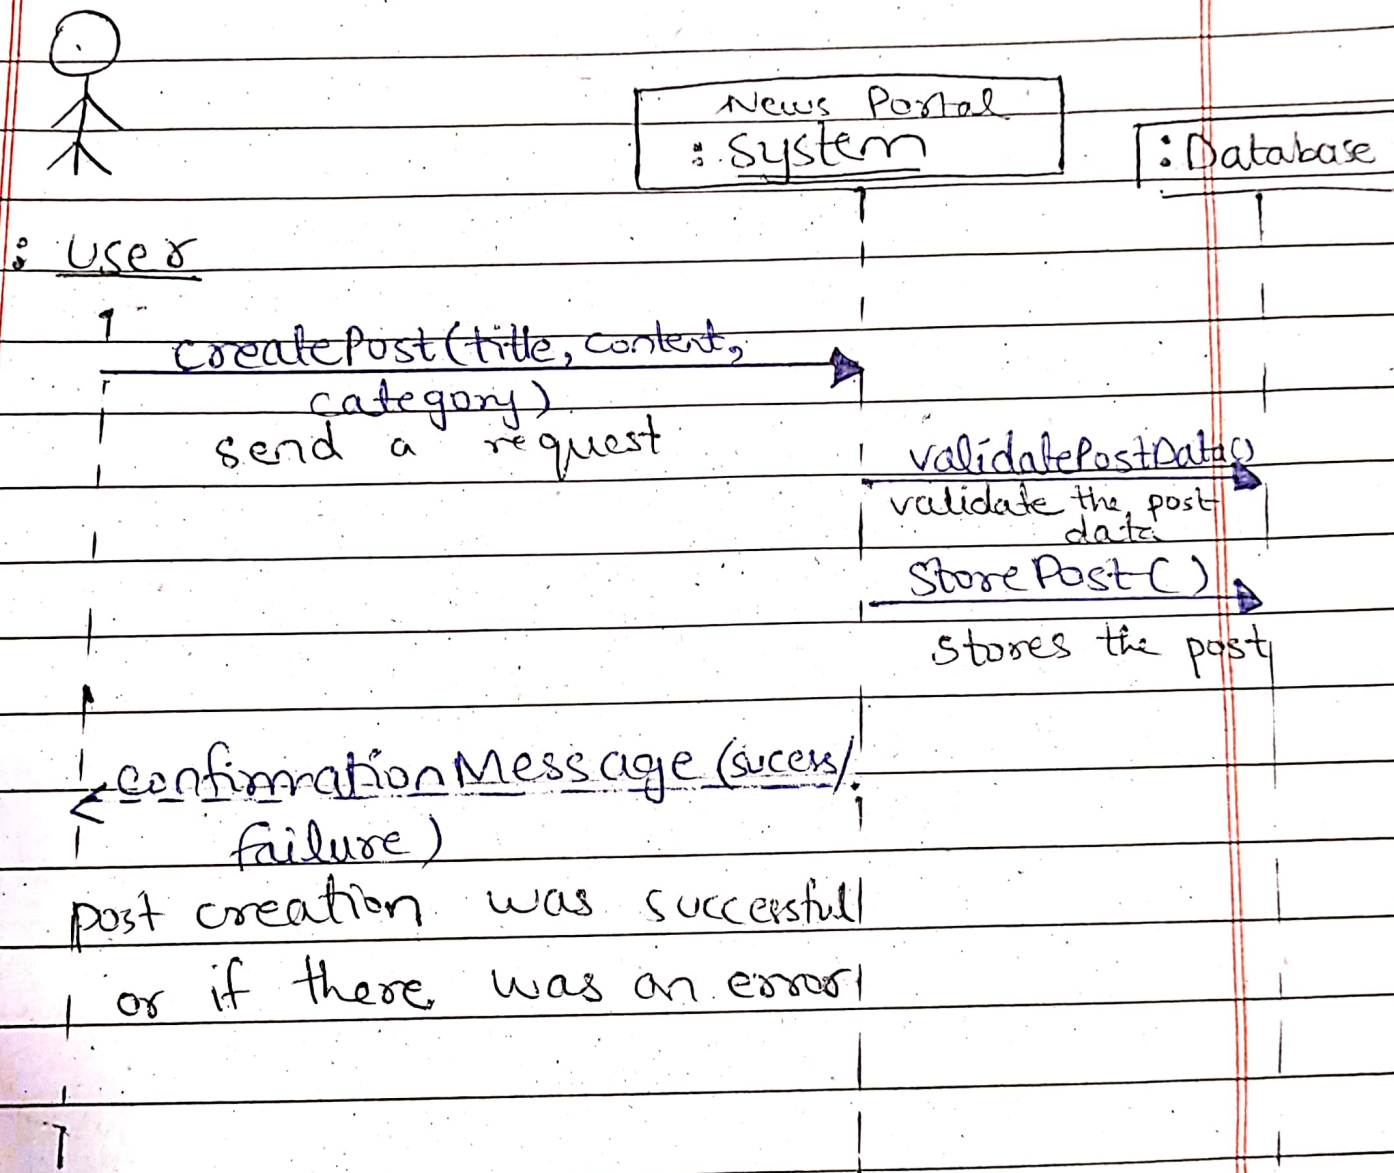 News Portal
: System
: Database
: User
createPost(title, content,
category)
send a request
validatePostData()
validate the post
data
storePost()
stores the post
confirmationMessage (sucess/
failure)
post creation was successfull
or if there was an error